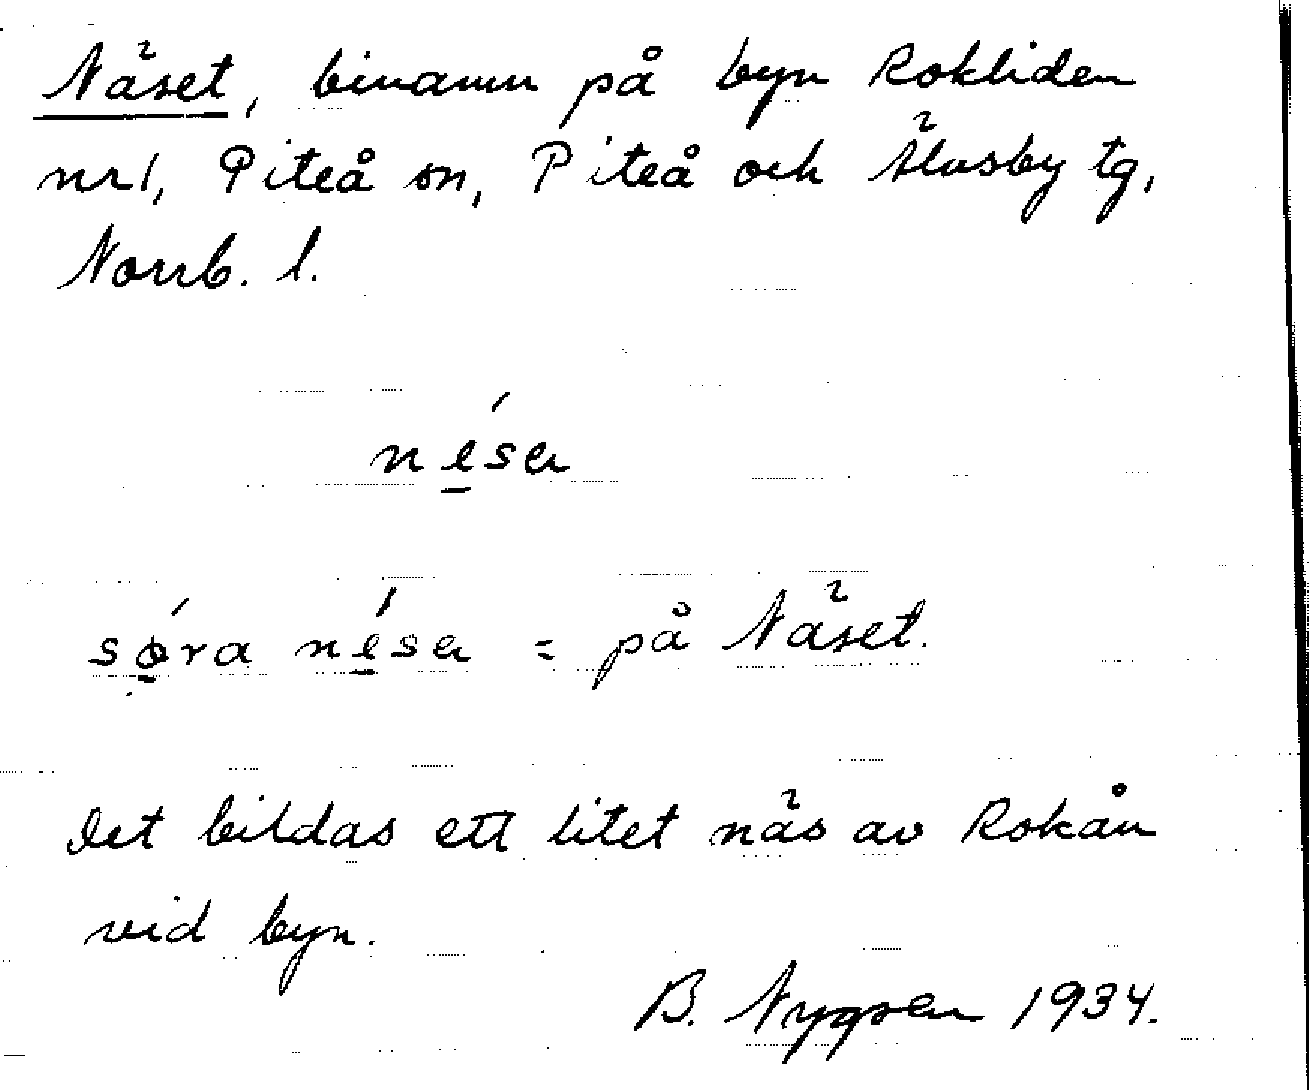 Näset, binamn på byn Rokliden
nr1, Piteå sn, Piteå och Älvsby tg,
Norrb. l.
nésa
søra nésa = på Näset.
Det bildas ett litet näs av Rokån
vid byn.
B. Nygren 1934.